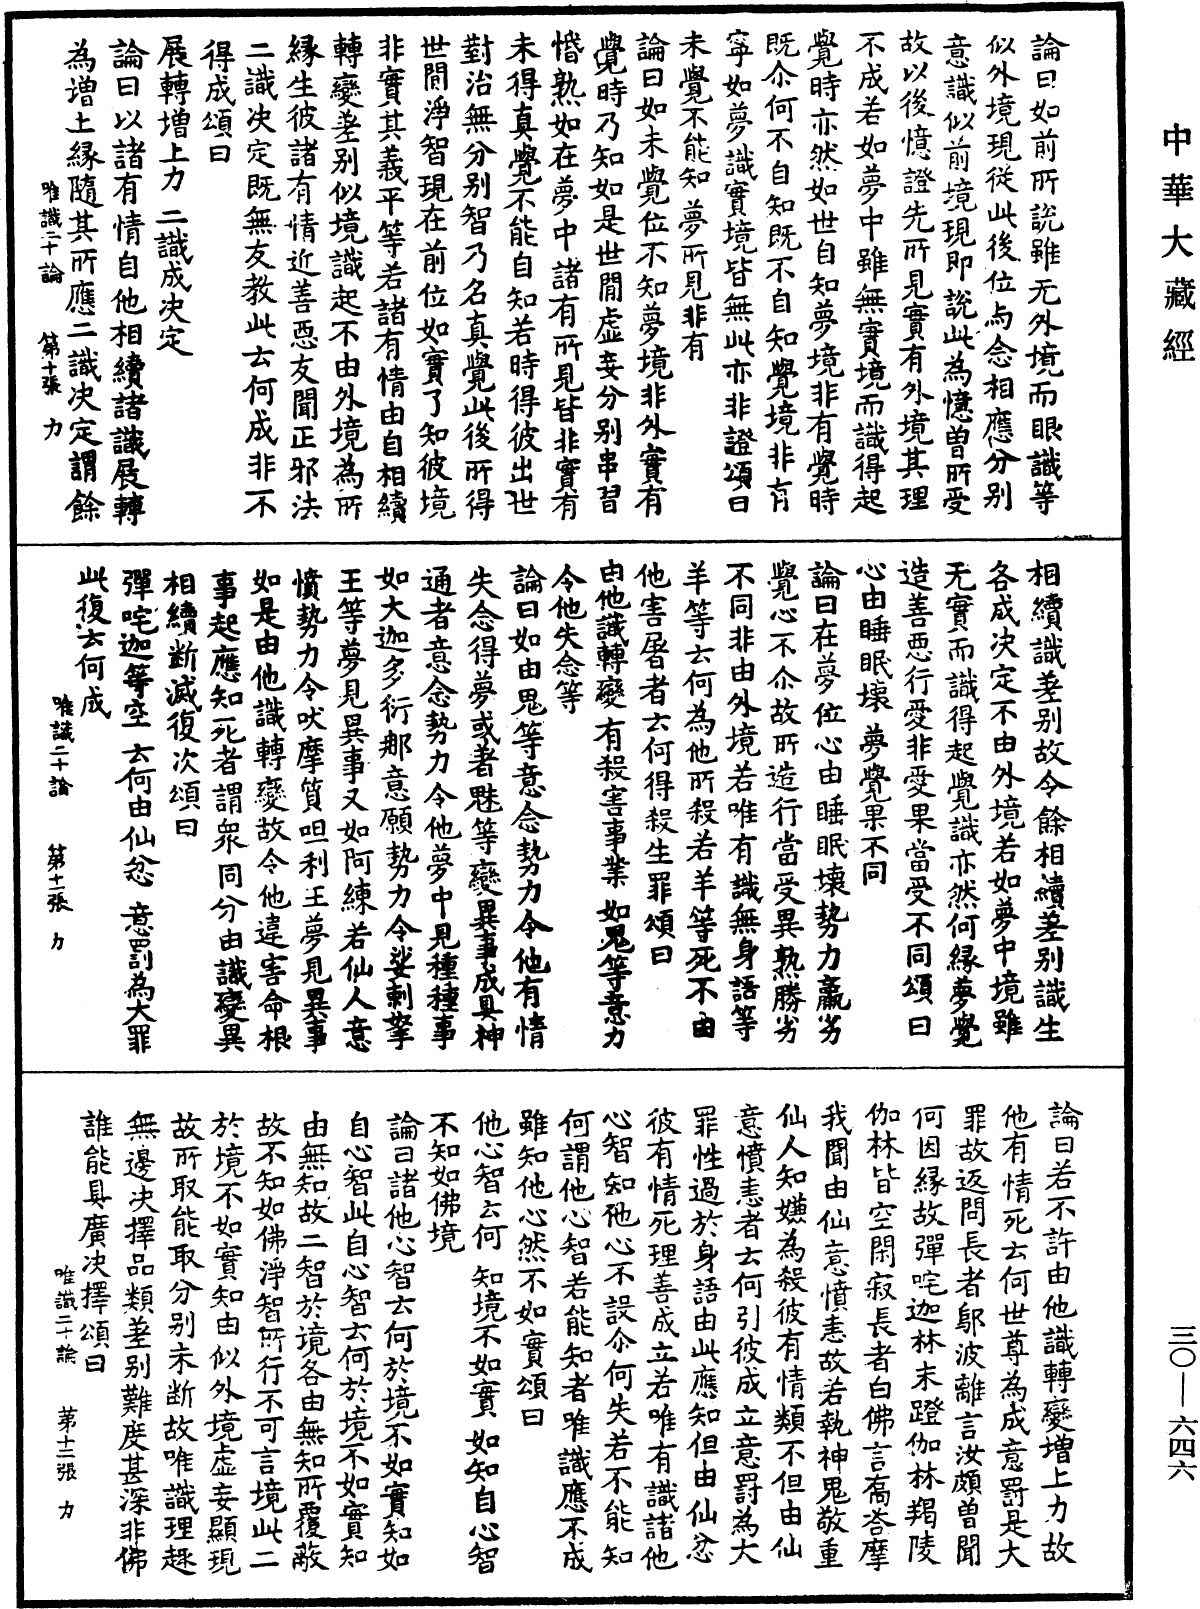 中華大藏經
論曰如前所說雖无外境而眼識等
似外境現從此後位与念相應分別
意識似前境現即說此為憶曽所受
故以後憶證先所見實有外境其理
不成若如夢中雖無實境而識得起
覺時亦然如世自知夢境非有覺時
既尒何不自知既不自知覺境非有
寧如夢識實境皆無此亦非證頌曰
未覺不能知 夢所見非有
論曰如未覺位不知夢境非外實有
覺時乃知如是世間虛妄分別串習
惛熟如在夢中諸有所見皆非實有
未得真覺不能自知若時得彼出世
對治無分別智乃名真覺此後所得
世間淨智現在前位如實了知彼境
非實其義平等若諸有情由自相續
轉變差別似境識起不由外境為所
緣生彼諸有情近善惡友聞正邪法
二識决定既無友教此云何成非不
得成頌曰
展轉增上力 二識成决定
論曰以諸有情自他相續諸識展轉
為增上緣隨其所應二識决定謂餘
唯識二十論 第十張 力
相續識差別故令餘相續差別識生
各成决定不由外境若如夢中境雖
无實而識得起覺識亦然何緣夢覺
造善惡行愛非愛果當受不同頌曰
心由睡眠壞 夢覺果不同
論曰在夢位心由睡眠壞勢力羸劣
覺心不尒故所造行當受異熟勝劣
不同非由外境若唯有識無身語等
羊等云何為他所殺若羊等死不由
他害屠者云何得殺生罪頌曰
由他識轉變 有殺害事業 如鬼等意力
令他失念等
論曰如由鬼等意念勢力令他有情
失念得夢或者魅等變異事成具神
通者意念勢力令他夢中見種種事
如大迦多衍那意願勢力令娑剌拏
王等夢見異事又如阿練若仙人意
憤勢力令吠摩質呾利王夢見異事
如是由他識轉變故令他違害命根
事起應知死者謂衆同分由識變異
相續斷滅復次頌曰
彈咤迦等空 云何由仙忿 意罰為大罪
此復云何成
唯識二十論 第十一張 力
論曰若不許由他識轉變增上力故
他有情死云何世尊為成意罸是大
罪故返問長者鄔波離言汝頗曽聞
何因緣故彈咤迦林末蹬伽林羯陵
伽林皆空閑寂長者白佛言喬荅摩
我聞由仙意憤恚故若執神鬼敬重
仙人知嫌為殺彼有情類不但由仙
意憤恚者云何引彼成立意罸為大
罪性過於身語由此應知但由仙忿
彼有情死理善成立若唯有識諸他
心智知他心不設尒何失若不能知
何謂他心智若能知者唯識應不成
雖知他心然不如實頌曰
他心智云何 知境不如實 如知自心智
不知如佛境
論曰諸他心智云何於境不如實知如
自心智此自心智云何於境不如實知
由無知故二智於境各由無知所覆蔽
故不知如佛淨智所行不可言境此二
於境不如實知由似外境虛妄顯現
故所取能取分別未斷故唯識理趣
無邊决擇品類差別難度甚深非佛
誰能具廣决擇頌曰
唯識二十論 第十二張 力
三〇—六四六